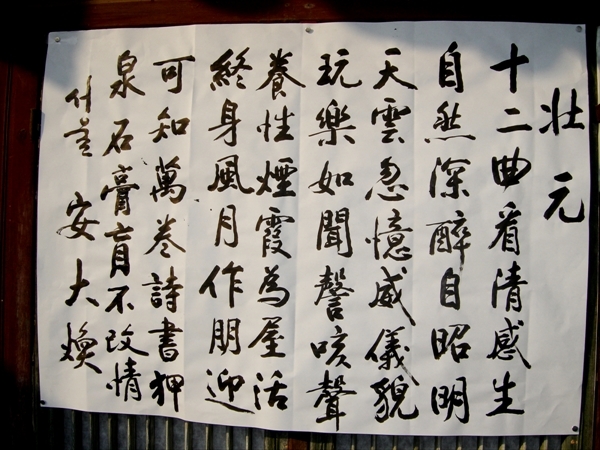 壯元
十二曲看清感生
自然深醉自昭明
天雲忽憶威儀貌
玩樂如聞謦咳聲
養性煙霞為屋活
終身風月作朋迎
可知萬卷詩書狎
泉石膏肓不改情
서울 安大煥